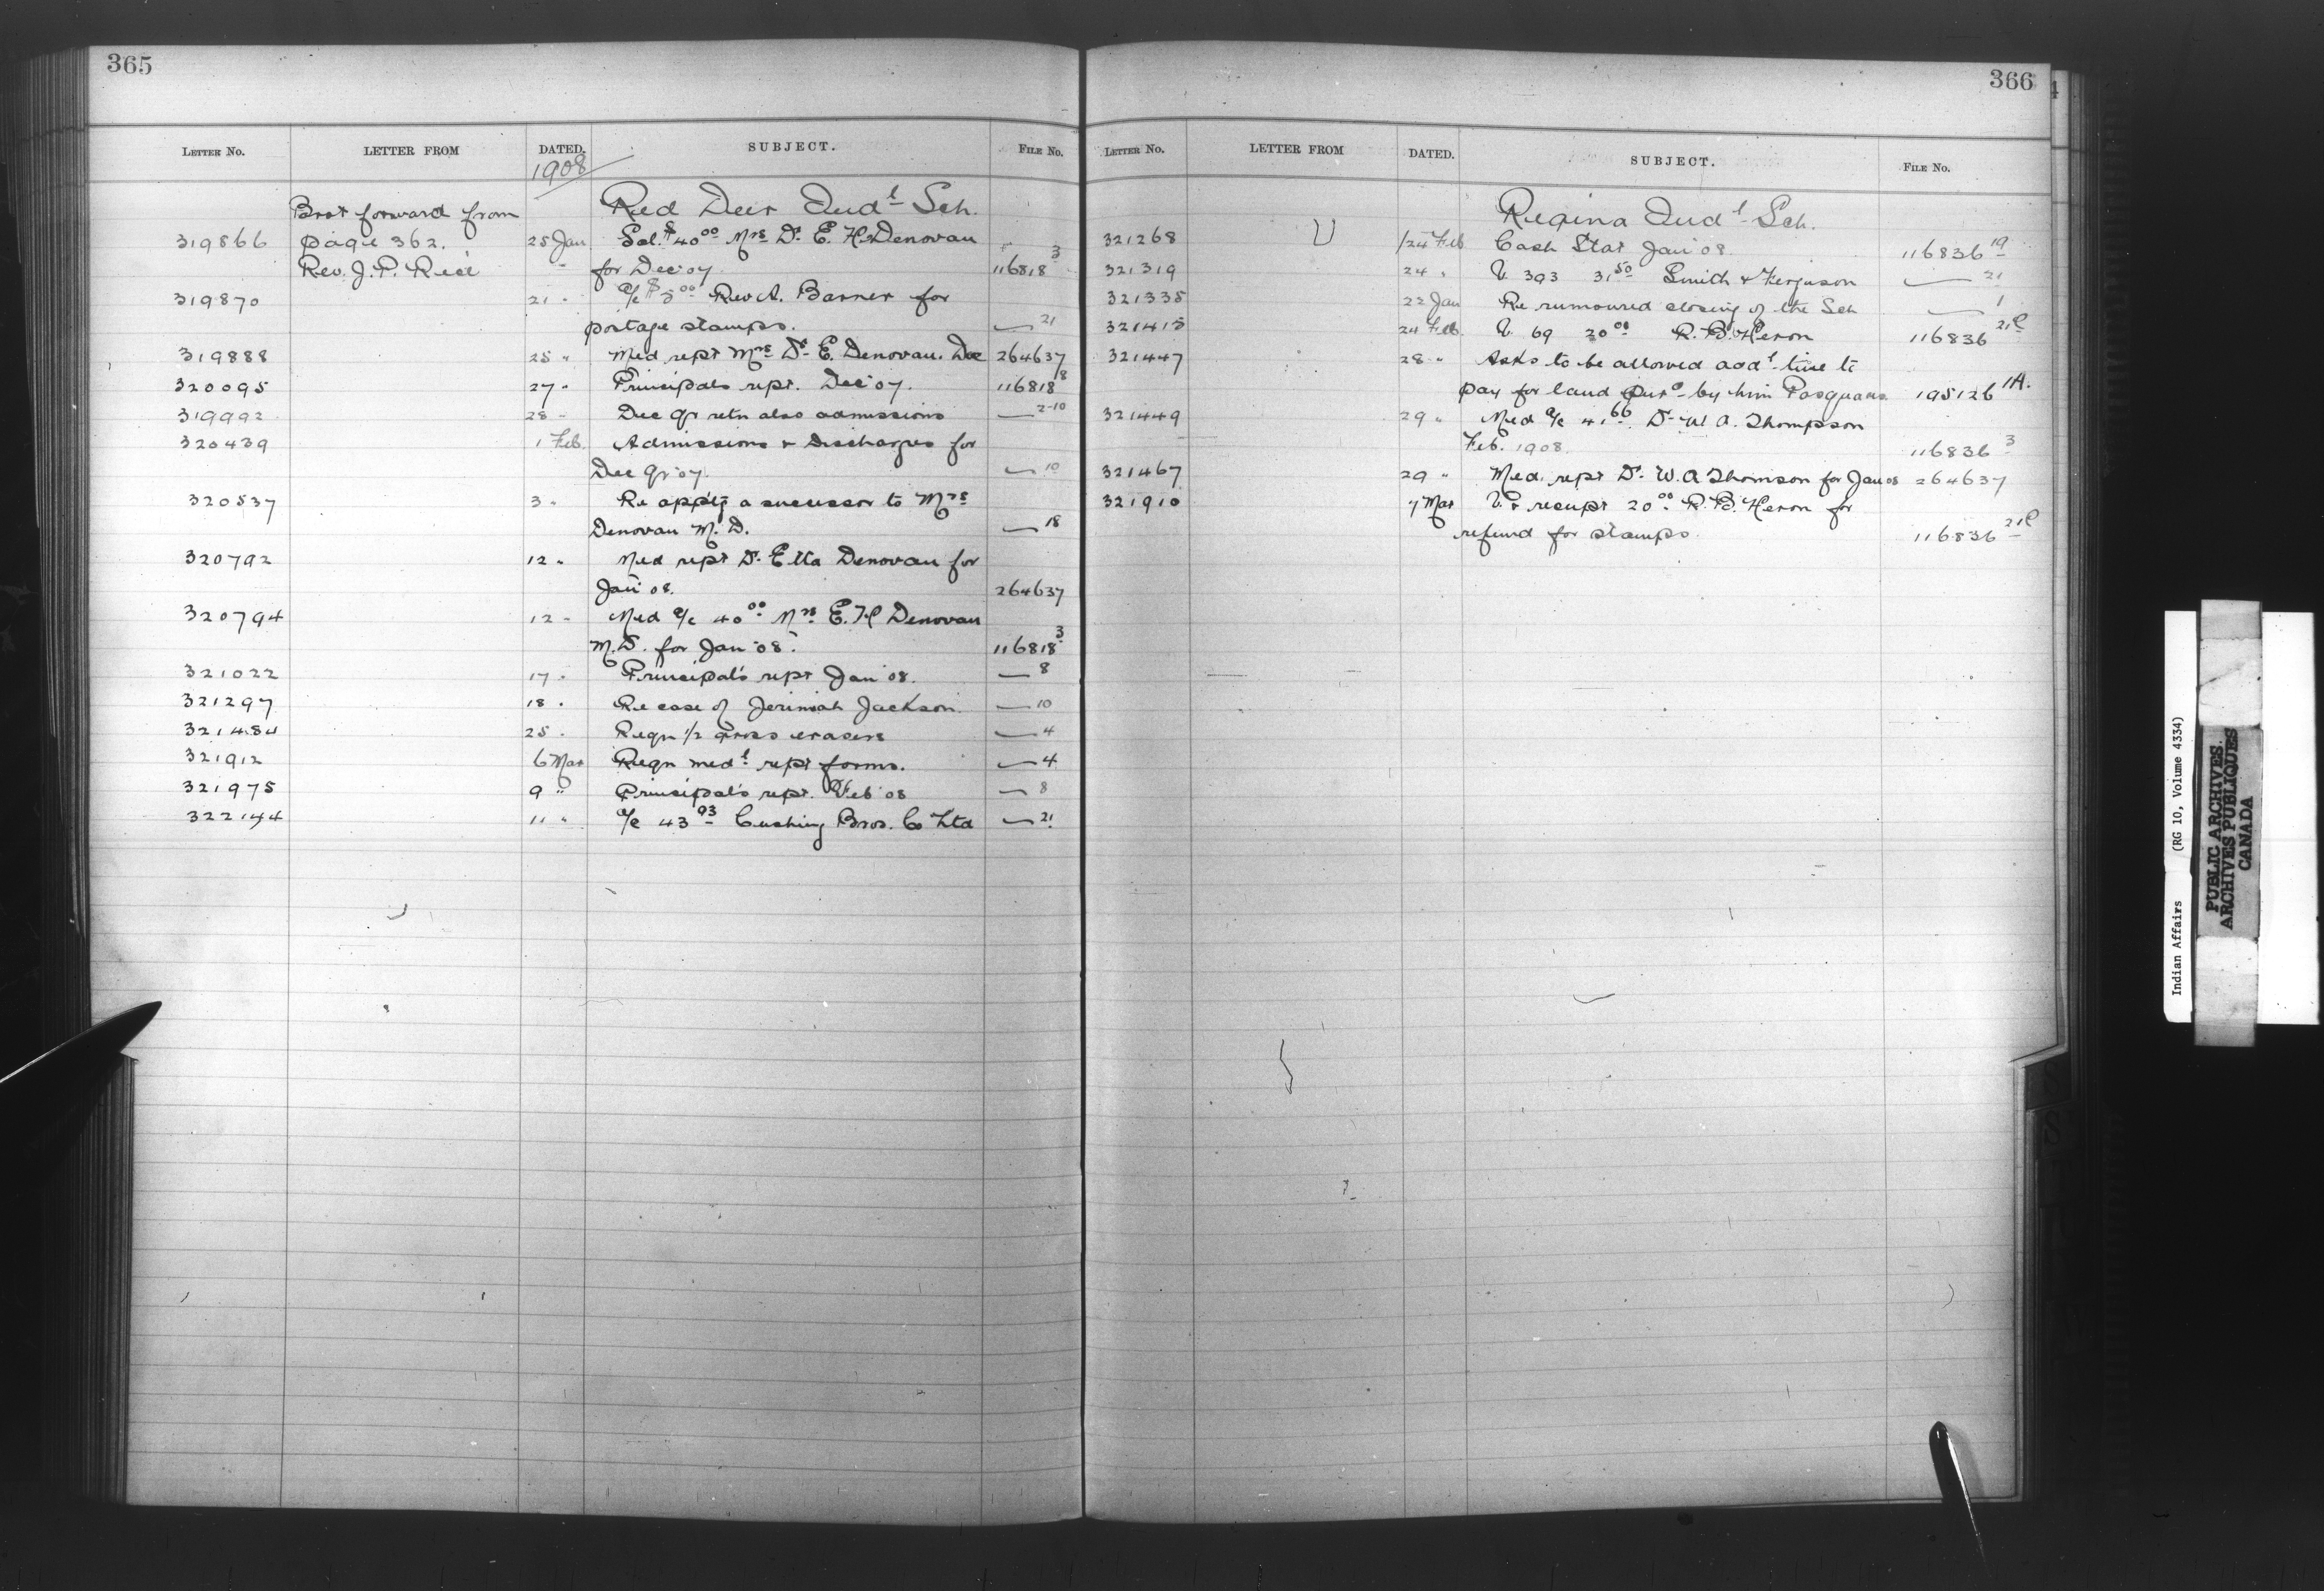 365
LETTER NO. LETTER FROM DATED. SUBJECT. FILE No.
1908
Brot forward from Red Deer Indl Sch.
319866 page 362. 25 Jan Sal. $40 00 Mrs Dr. E. H. Denovan
Rev. J. P. Rice " for Dec 07. 116818 3
319870 21 " a/c $5 00 Rev A. Barner for
postage stamps. — 21
319888 25 " Med rept Mrs Dr. E. Denovan. Dec 264637
320095 27 " Principals rept. Dec 07. 116818 8
319992 28 " Dec qr retn also admissions — 2-10
320439 1 Feb. Admissions & Discharges for
Dec qr 07. — 10
320537 3 " Re apptg a successor to Mrs
Denovan M. D. — 18
320792 12 " Med rept Dr. Etta Denovan for
Jan 08. 264637
320794 12 " Med a/c 40 00 Mrs E. H Denovan
M. D. for Jan 08. 116818 3
321022 17 " Principal's rept Jan 08. — 8
321297 18 " Re case of Jerimiah Jackson. — 10
321484 25 " Reqn 1/2 gross erasers — 4
321912 6 Mar Reqn medl rept forms. — 4
321975 9 " Principal's rept. Feb 08 — 8
322144 11 " a/c 43 93 Cushing Bros. Co Ltd — 21
366
LETTER NO. LETTER FROM DATED. SUBJECT. FILE No.
Regina Indl Sch.
321268 24 Feb Cash Stat Jan 08. 116836 19
321319 24 " V. 393 31 50 Smith & Ferguson — 21
321335 22 Jan Re rumoured closing of the Sch — 1
321415 24 Feb. V. 69 20 00 R. B. Heron 116836 21C
321447 28 " Asks to be allowed addl time to
pay for land purd by him Pasquahs 195126 1A.
321449 29 " Med a/c 41 66 Dr. W. A. Thompson
Feb. 1908. 116836 3
321467 29 " Med. rept Dr. W. A Thomson for Jan 08 264637
321910 7 Mar V. & receipt 20 00 R. B. Heron for
refund for stamps. 116836 21C
Indian Affairs (RG 10, Volume 4334)
PUBLIC ARCHIVES
ARCHIVES PUBLIQUES
CANADA